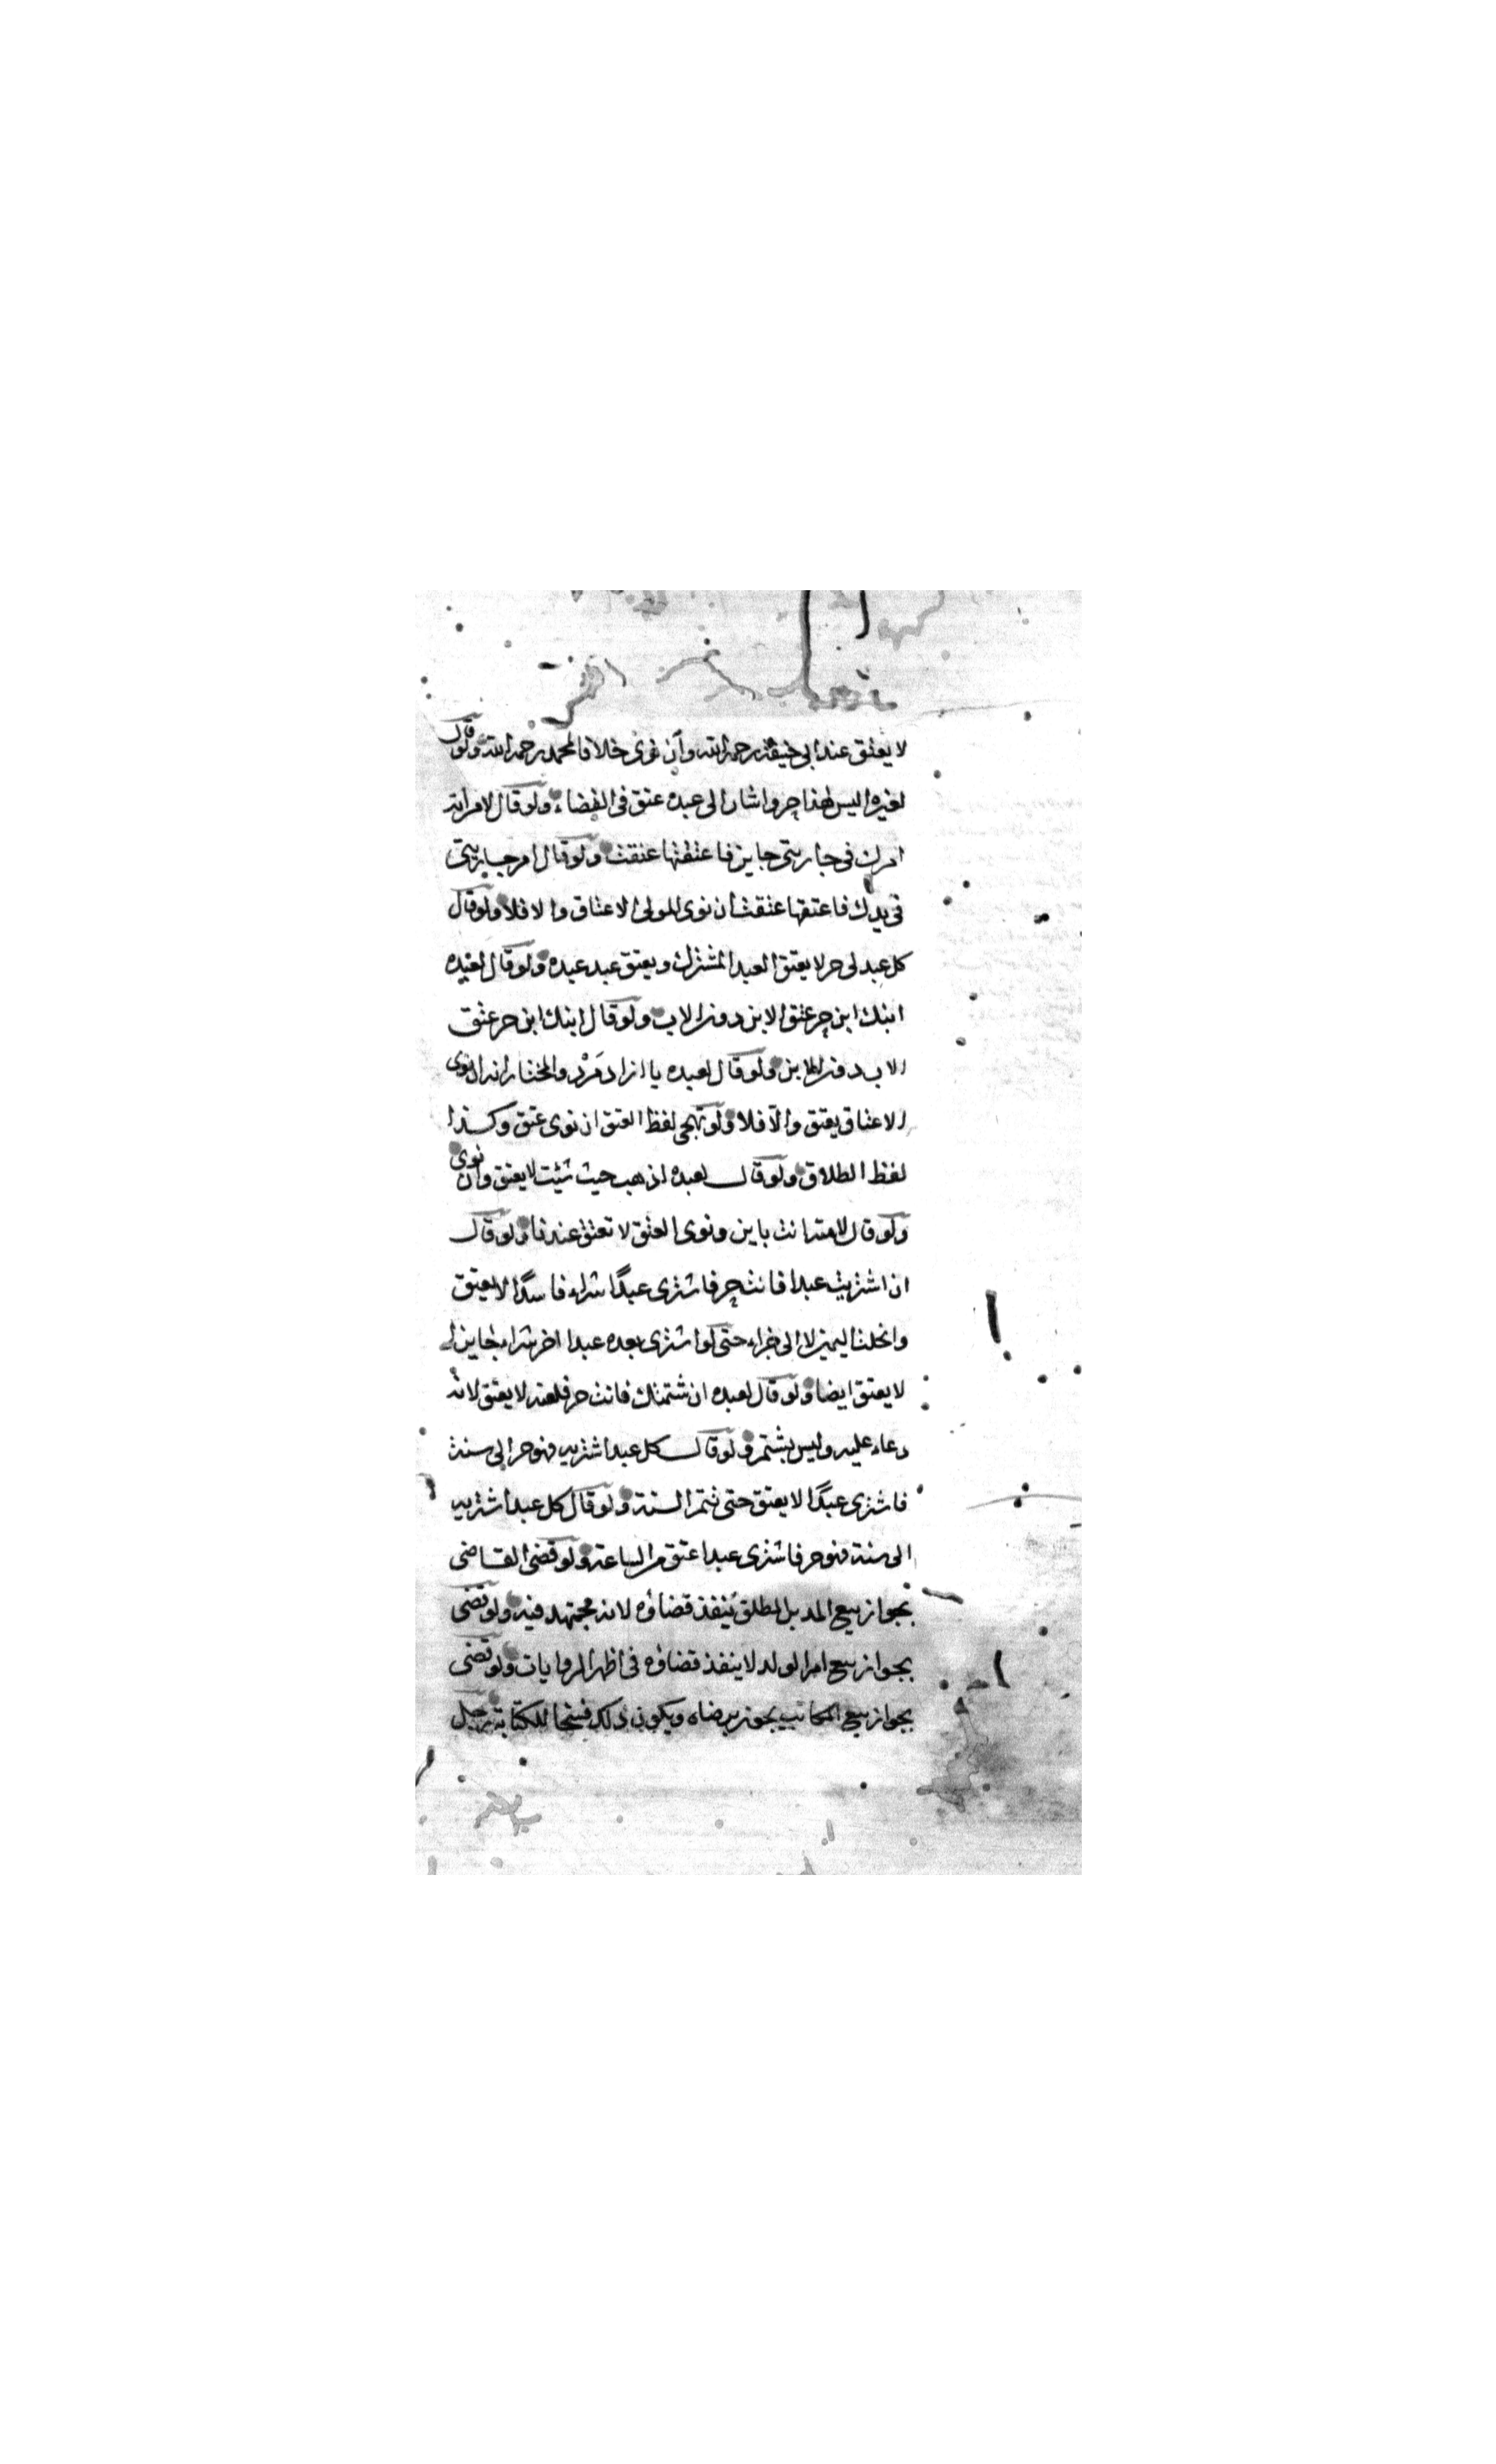 لا يعتق عند ابى حنيفة رحمه الله وان نوى خلافا لمحمد رحمه الله ولو قال
لغيره اليس هذا حر واشار الى عبده عتق فى القضاء ولو قال لامراته
امرك فى جاريتى جايز فاعتقتها عتقت ولو قال امر جاريتى
فى يدك فاعتقها عتقت ان نوى المولى الاعتاق والا فلا ولو قال
كل عبد لى حر لا يعتق العبد المشترك ويعتق عبد عبده ولو قال لعبده
ابنك ابن حر عتق الابن دون الاب ولو قال ابنك ابن حر عتق
الاب دون الابن ولو قال لعبده يا ازاد مَرْد والمختار انه ان نوى
الاعتاق يعتق والا فلا ولو تهجى لفظ العتق ان نوى عتق وكذا
لفظ الطلاق ولو قال لعبده اذهب حيث شئت لا يعتق وان نوى
ولو قال لامته انت باين ونوى العتق لا تعتق عندنا ولو قال
ان اشتريت عبدا فانت حر فاشترى عبدًا شراء فاسدًا لا يعتق
وانحلت اليمين لا الى جزاء حتى لو اشترى بعده عبدا اخر شراء جايزا
لا يعتق ايضا ولو قال لعبده ان شتمتك فانت حر فلعنه لا يعتق لانه
دعاء عليه وليس بشتم ولو قال كل عبد اشتريه فهو حر الى سنة
فاشترى عبدًا لا يعتق حتى تتم السنة ولو قال كل عبد اشتريه
الى سنة فهو حر فاشترى عبدا عتق من الساعة ولو قضى القاضى
بجواز بيع المدبر المطلق ينفذ قضاؤه لانه مجتهد فيه ولو قضى
بجواز بيع ام الولد لا ينفذ قضاؤه فى اظهر الروايات ولو قضى
بجواز بيع المكاتب يجوز برضاه ويكون ذلك فسخا للكتابة رجل